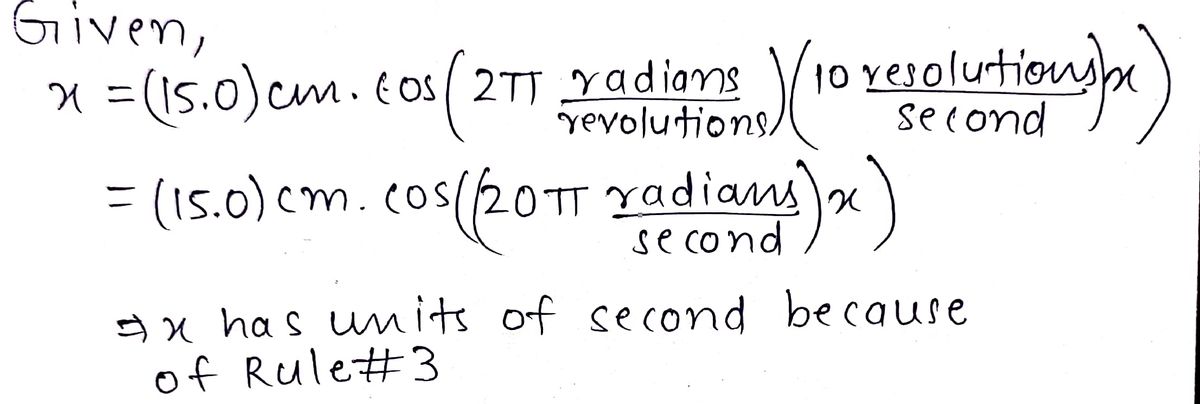 Given,
x = (15.0) cm. cos(2π radians/revolutions)(10 resolutions/second)x)
= (15.0) cm. cos((20π radians/second)x)
⇒ x has units of second because
of Rule#3